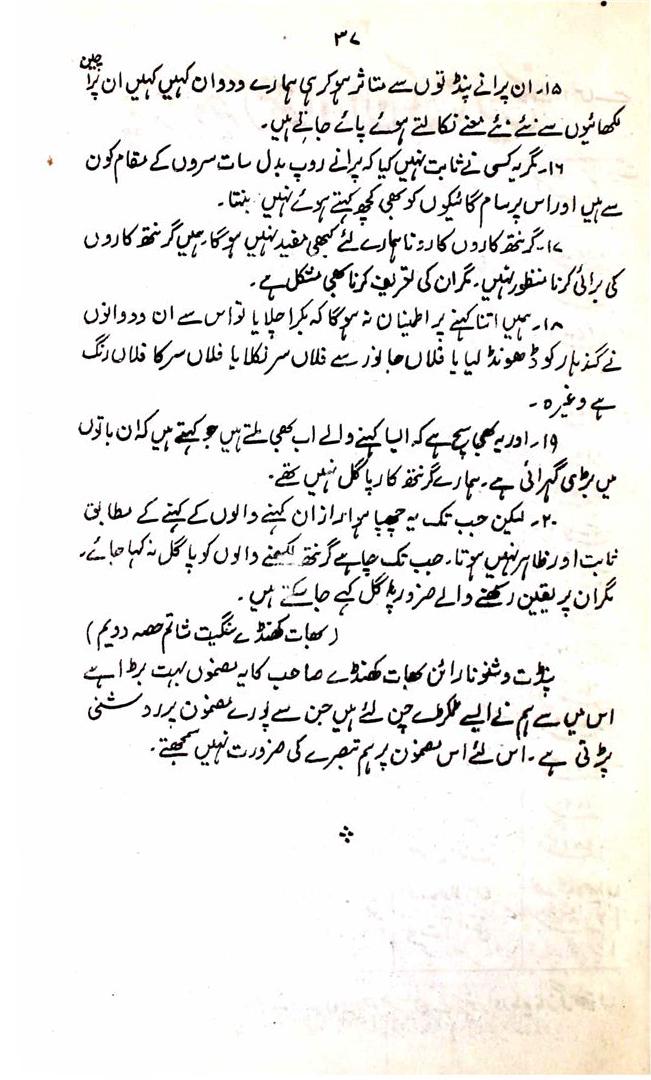 ۳۷
۱۵۔ ان پرانے پنڈتوں سے متاثر ہو کر ہی ہمارے ودوان کہیں کہیں ان پراچین
لکھائیوں سے نئے نئے معنے نکالتے ہوئے پائے جاتے ہیں۔
۱۶۔ مگر یہ کسی نے ثابت نہیں کیا کہ پرانے روپ بدل سات سروں کے مقام کون
سے ہیں اور اس پر سام گائیکوں کو بھی کچھ کہتے ہوئے نہیں بنتا۔
۱۷۔ گرنتھ کاروں کا رونا ہمارے لئے کبھی مفید نہیں ہو گا۔ ہمیں گرنتھ کاروں
کی برائی کرنا منظور نہیں۔ مگر ان کی تعریف کرنا بھی مشکل ہے۔
۱۸۔ ہمیں اتنا کہنے پر اطمینان نہ ہو گا کہ بکرا چلایا تو اس سے ان ودوانوں
نے گندہار کو ڈھونڈ لیا یا فلاں جانور سے فلاں سر نکلا یا فلاں سر کا فلاں رنگ
ہے وغیرہ۔
۱۹۔ اور یہ بھی سچ ہے کہ ایسا کہنے والے اب بھی ملتے ہیں جو کہتے ہیں کہ ان باتوں
میں بڑی گہرائی ہے۔ ہمارے گرنتھ کار پاگل نہیں تھے۔
۲۰۔ لیکن جب تک یہ چھپا ہوا راز ان کہنے والوں کے کہنے کے مطابق
ثابت اور ظاہر نہیں ہوتا۔ جب تک چاہے گرنتھ لکھنے والوں کو پاگل نہ کہا جائے۔
مگر ان پر یقین رکھنے والے ضرور پاگل کہے جا سکتے ہیں۔
(بھات کھنڈے سنگیت شاتم حصہ دویم)
پنڈت وشنو نارائن بھات کھنڈے صاحب کا یہ مضمون بہت بڑا ہے
اس میں سے ہم نے ایسے ٹکڑے چن لئے ہیں جن سے پورے مضمون پر روشنی
پڑتی ہے۔ اس لئے اس مضمون پر ہم تبصرے کی ضرورت نہیں سمجھتے۔